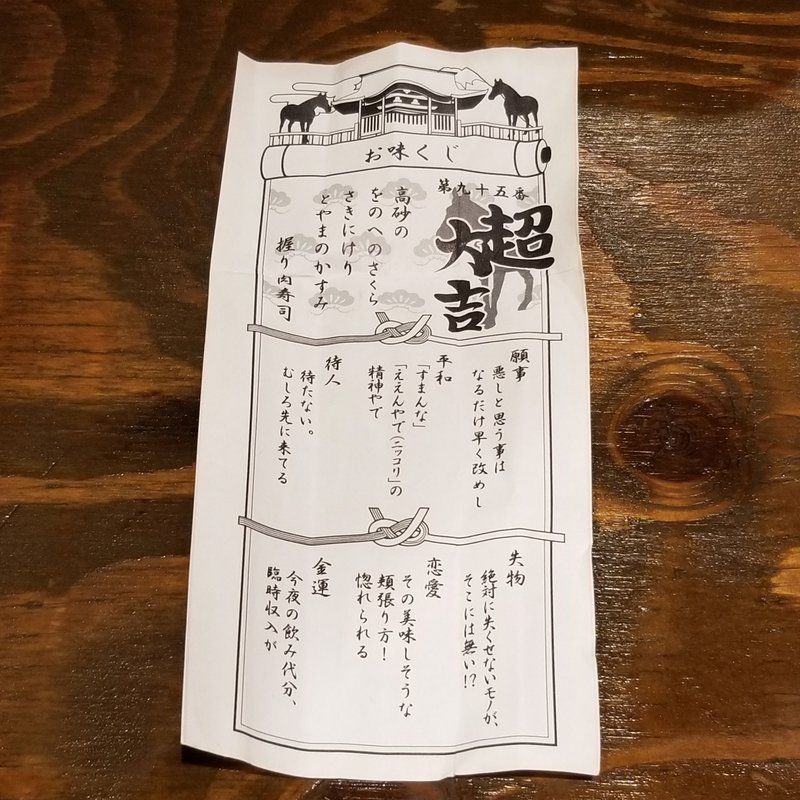 お味くじ
第九十五番
超大吉
高砂の
をのへのさくら
さきにけり
とやまのかすみ
握り肉寿司
願事
悪しと思う事は
なるだけ早く改めし
平和
「すまんな」
「ええんやで(ニッコリ」の
精神やで
待人
待たない。
むしろ先に来てる
失物
絶対に失くせないモノが、
そこには無い!?
恋愛
その美味しそうな
頬張り方!
惚れられる
金運
今夜の飲み代分、
臨時収入が